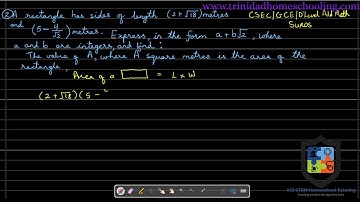 www.trinidadhomeschooling.com
② A rectangle has sides of length (2+√18) metres
CSEC/GCE/O Level Add Math
Surds
and (5 - 4/√2) metres. Express, in the form a+b√2, where
a and b are integers, and find:
The value of A, where A square metres is the area of the
rectangle.
Area of a = L x W
(2+√18)(5 -
KTJ STEM Homeschool Tutoring